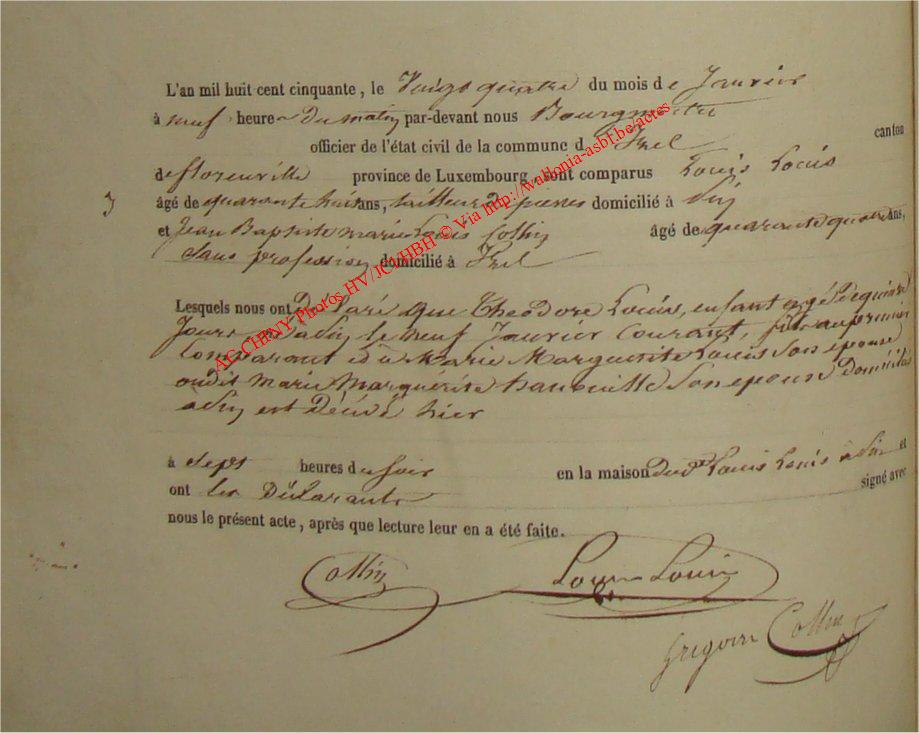 L'an mil huit cent cinquante, le Vingt quatre du mois de Janvier
à neuf heures Du matin par-devant nous Bourgmestre
officier de l'état civil de la commune d Izel canton
de florenville province de Luxembourg, sont comparus Louis Louis
3
âgé de quarante huit ans, tailleur De pierres domicilié à
et Jean Baptiste marie Louis Collin âgé de quarante quatre ans,
Sans profession domicilié à Izel
Lesquels nous ont Déclaré Que Théodore Louis, enfant agé De quinze
Jours né le neuf Janvier Courant, fils au premier
Comparant et à Marie Marguerite Louis Son epouse
oudit Marie Marguerite Son epouse Domiciliés
est Décédé hier
à Sept heures du Soir en la maison Louis Louis et
ont les Déclarants signé avec
nous le présent acte, après que lecture leur en a été faite.
Collin Louis Louis
Grégoire Collin
AC CHINY Photos HV/JCV/HBH © Via http://wallonia-asbl.be/actes